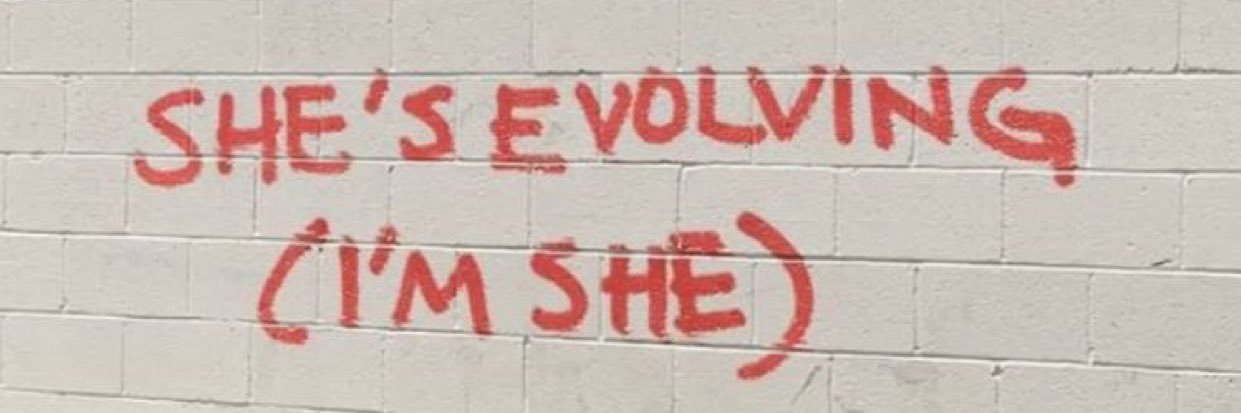 SHE'S EVOLVING
(I'M SHE)